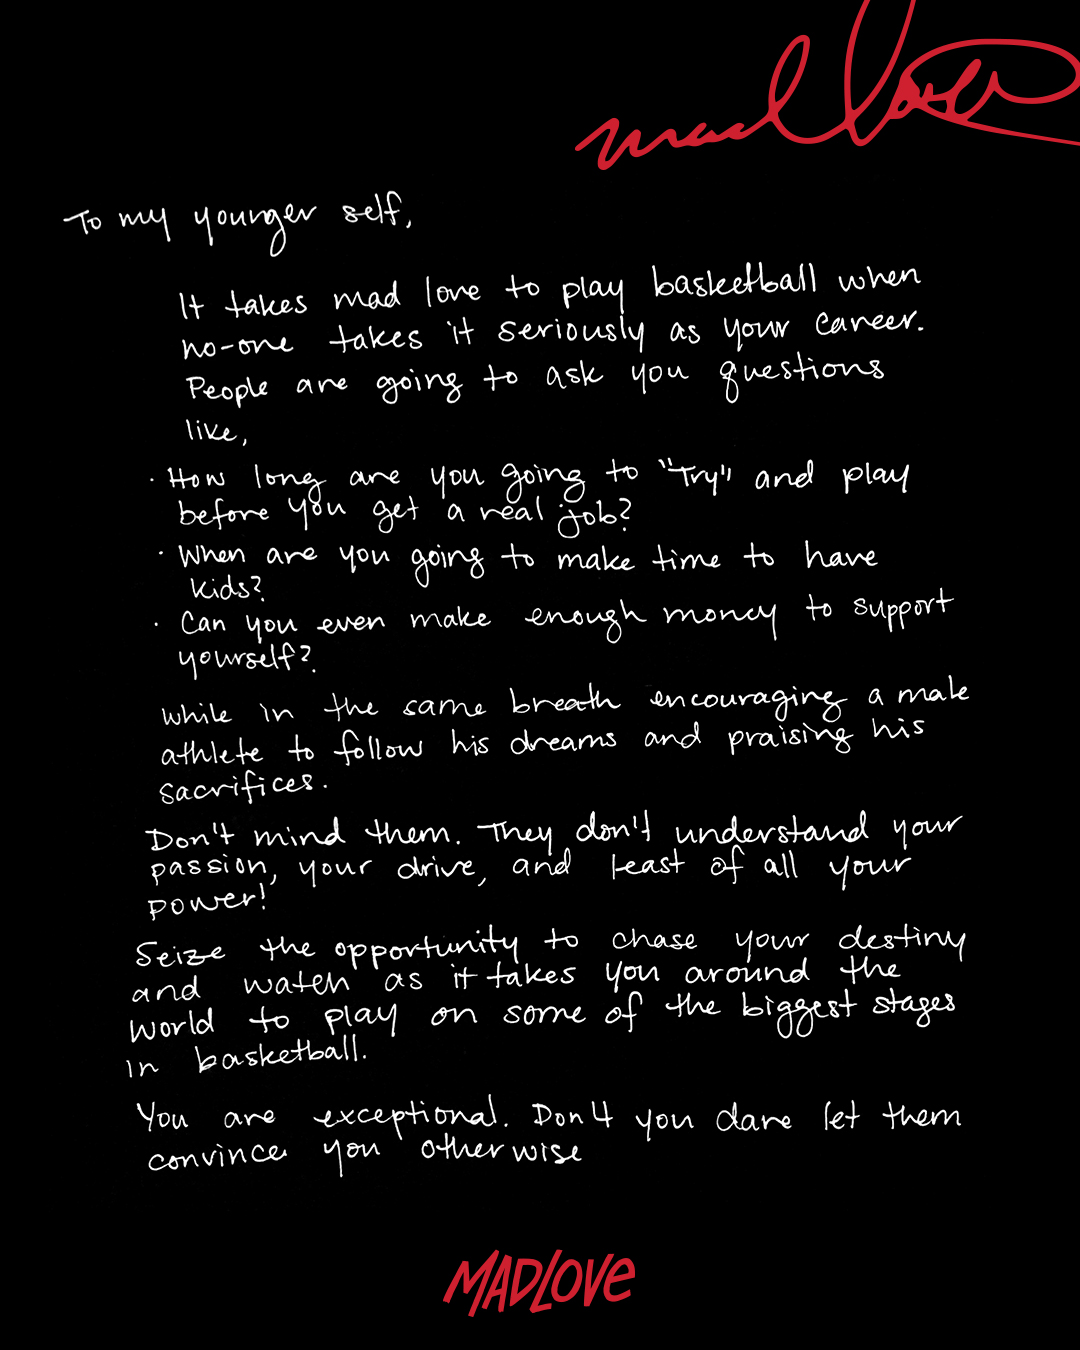 mad love
To my younger self,
It takes mad love to play basketball when
no-one takes it seriously as your career.
People are going to ask you questions
like,
· How long are you going to "Try" and play
before you get a real job?
· When are you going to make time to have
kids?
· Can you even make enough money to support
yourself?
while in the same breath encouraging a male
athlete to follow his dreams and praising his
sacrifices.
Don't mind them. They don't understand your
passion, your drive, and least of all your
power!
Seize the opportunity to chase your destiny
and watch as it takes you around the
world to play on some of the biggest stages
in basketball.
You are exceptional. Don't you dare let them
convince you otherwise
MADLOVE